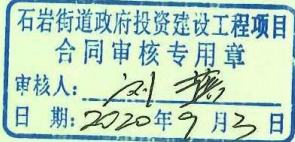 石岩街道政府投资建设工程项目
合同审核专用章
审核人：刘
日期：2020年9月3日